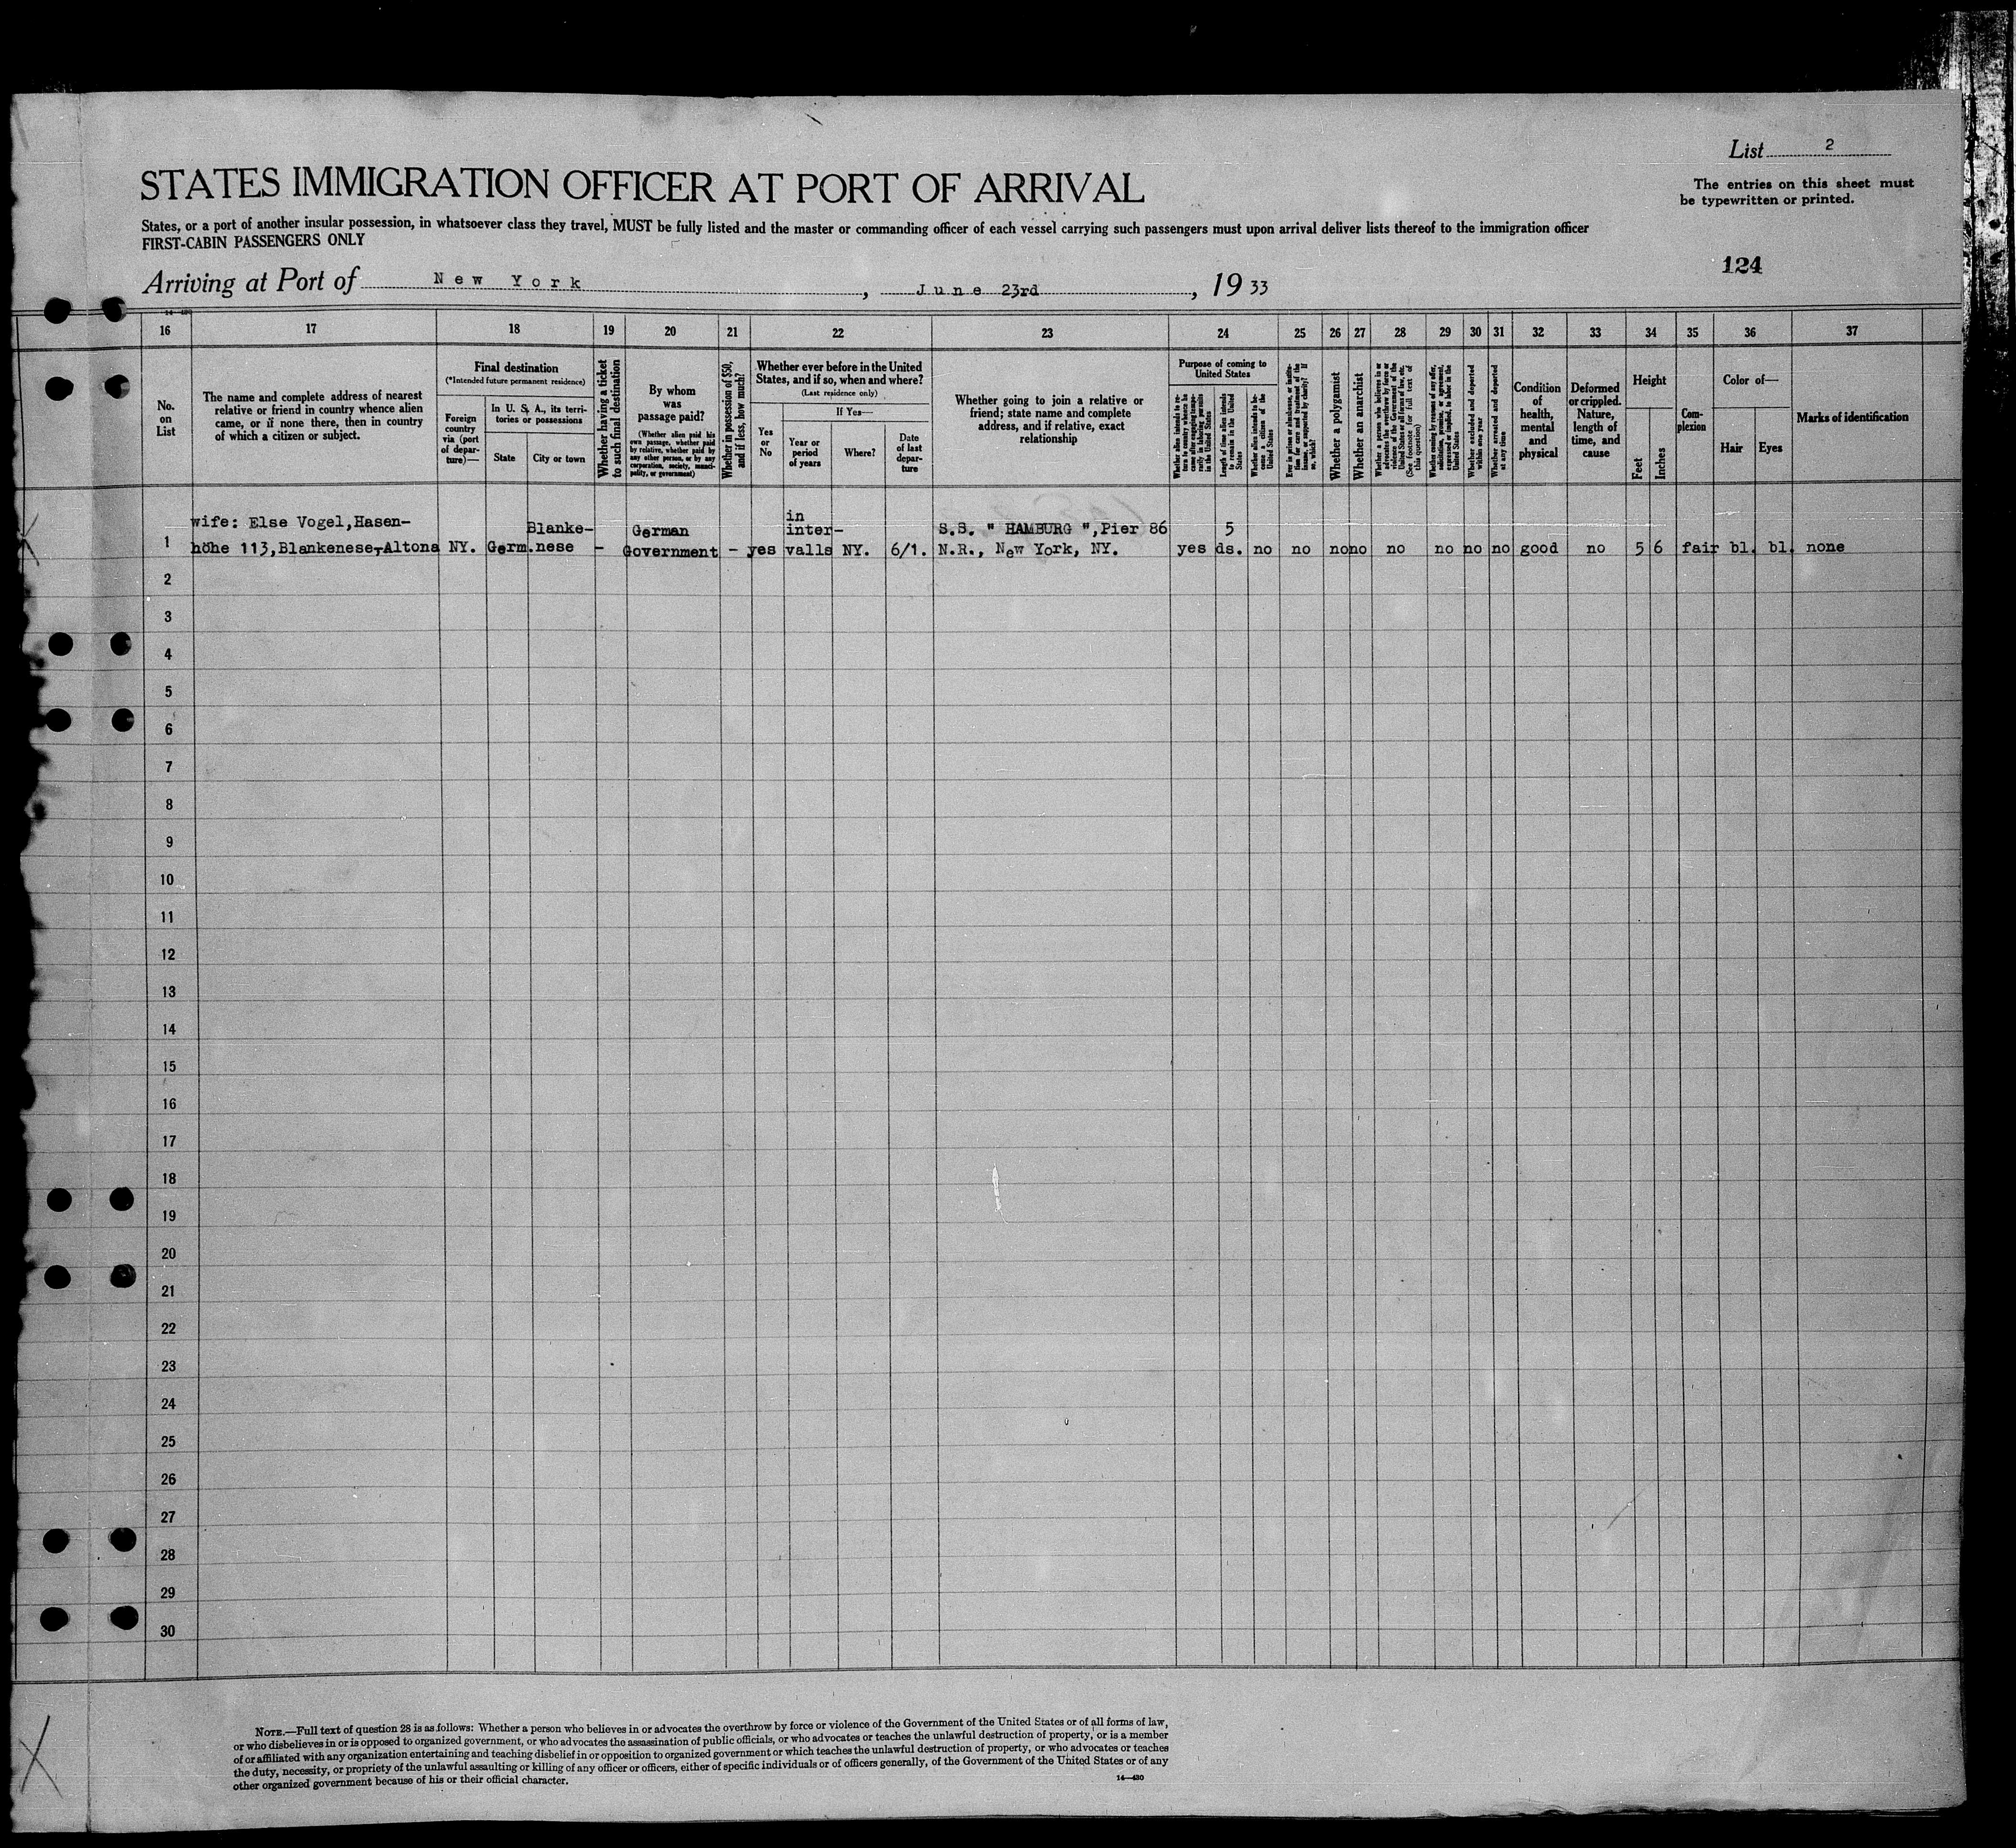 List 2
STATES IMMIGRATION OFFICER AT PORT OF ARRIVAL
The entries on this sheet must
be typewritten or printed.
States, or a port of another insular possession, in whatsoever class they travel, MUST be fully listed and the master or commanding officer of each vessel carrying such passengers must upon arrival deliver lists thereof to the immigration officer
FIRST-CABIN PASSENGERS ONLY
124
Arriving at Port of New York, June 23rd, 1933
16 17 18 19 20 21 22 23 24 25 26 27 28 29 30 31 32 33 34 35 36 37
No.
on
List
The name and complete address of nearest
relative or friend in country whence alien
came, or if none there, then in country
of which a citizen or subject.
Final destination
(*Intended future permanent residence)
Foreign
country
via (port
of depar-
ture)—
In U. S. A., its terri-
tories or possessions
State
City or town
Whether having a ticket
to such final destination
By whom
was
passage paid?
(Whether alien paid his
own passage, whether paid
by relative, whether paid by
any other person, or by any
corporation, society, munici-
pality, or government)
Whether in possession of $50,
and if less, how much?
Whether ever before in the United
States, and if so, when and where?
(Last residence only)
Yes
or
No
If Yes—
Year or
period
of years
Where?
Date
of last
depar-
ture
Whether going to join a relative or
friend; state name and complete
address, and if relative, exact
relationship
Purpose of coming to
United States
Whether alien intends to re-
turn to country whence he
came after engaging tempo-
rarily in laboring pursuits
in the United States
Length of time alien intends
to remain in the United
States
Whether alien intends to be-
come a citizen of the
United States
Ever in prison or almshouse, or institu-
tion for care and treatment of the
insane, or supported by charity? If
so, which?
Whether a polygamist
Whether an anarchist
Whether a person who believes in or
advocates the overthrow by force or
violence of the Government of the
United States or all forms of law, etc.
(See footnote for full text of
this question)
Whether coming by reasons of any offer,
solicitation, promise, or agreement,
expressed or implied, to labor in the
United States
Whether excluded and deported
within one year
Whether arrested and deported
at any time
Condition
of
health,
mental
and
physical
Deformed
or crippled.
Nature,
length of
time, and
cause
Height
Feet
Inches
Com-
plexion
Color of—
Hair
Eyes
Marks of identification
wife: Else Vogel,Hasen- Blanke- German in inter- S.S. " HAMBURG ",Pier 86 5
1 höhe 113,Blankenese-Altona NY. Germ.nese - Government - yes valls NY. 6/1. N.R., New York, NY. yes ds. no no no no no no no no good no 5 6 fair bl. bl. none
2
3
4
5
6
7
8
9
10
11
12
13
14
15
16
17
18
19
20
21
22
23
24
25
26
27
28
29
30
NOTE.—Full text of question 28 is as follows: Whether a person who believes in or advocates the overthrow by force or violence of the Government of the United States or of all forms of law,
or who disbelieves in or is opposed to organized government, or who advocates the assassination of public officials, or who advocates or teaches the unlawful destruction of property, or is a member
of or affiliated with any organization entertaining and teaching disbelief in or opposition to organized government or which teaches the unlawful destruction of property, or who advocates or teaches
the duty, necessity, or propriety of the unlawful assaulting or killing of any officer or officers, either of specific individuals or of officers generally, of the Government of the United States or of any
other organized government because of his or their official character.
14—430